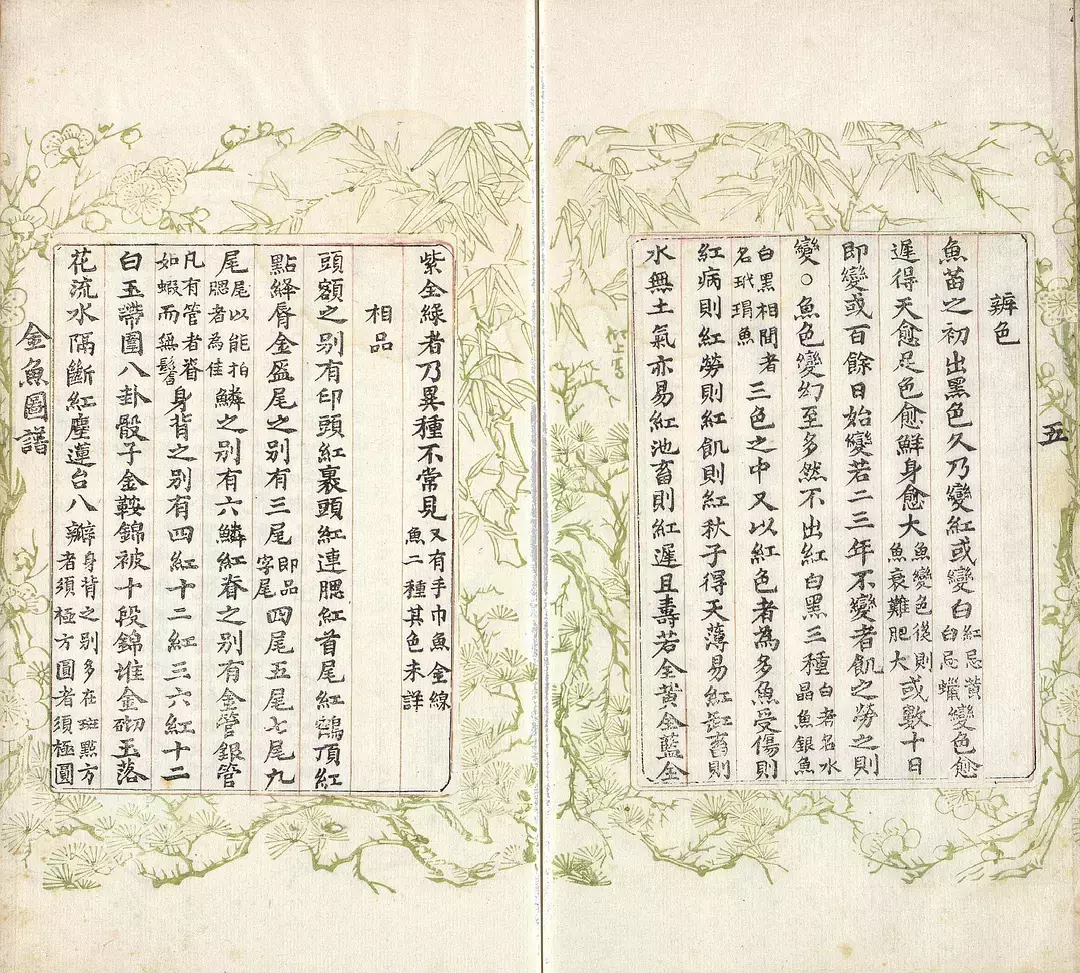 五
辨色
魚苗之初出黑色久乃變紅或變白紅忌黃白忌蠟變色愈
遲得天愈足色愈鮮身愈大魚變色後則魚衰難肥大或數十日
即變或百餘日始變若二三年不變者飢之勞之則
變○魚色變幻至多然不出紅白黑三種白者名水晶魚銀魚
白黑相間者名玳瑁魚三色之中又以紅色者為多魚受傷則
紅病則紅勞則紅飢則紅秋子得天薄易紅缸畜則
水無土氣亦易紅池畜則紅遲且壽若全黃全藍全
紫全綠者乃異種不常見又有手巾魚金線魚二種其色未詳
相品
頭額之别有印頭紅裹頭紅連腮紅首尾紅鶴頂紅
點絳脣金盔尾之别有三尾即品字尾四尾五尾七尾九
尾尾以能拍腮者為佳鱗之别有六鱗紅脊之别有金管銀管
凡有管者脊如蝦而無鬐身背之别有四紅十二紅三六紅十二
白玉帶圍八卦骰子金鞍錦被十段錦堆金砌玉落
花流水隔斷紅塵蓮台八瓣身背之别多在斑點方者須極方圓者須極圓
金魚圖譜